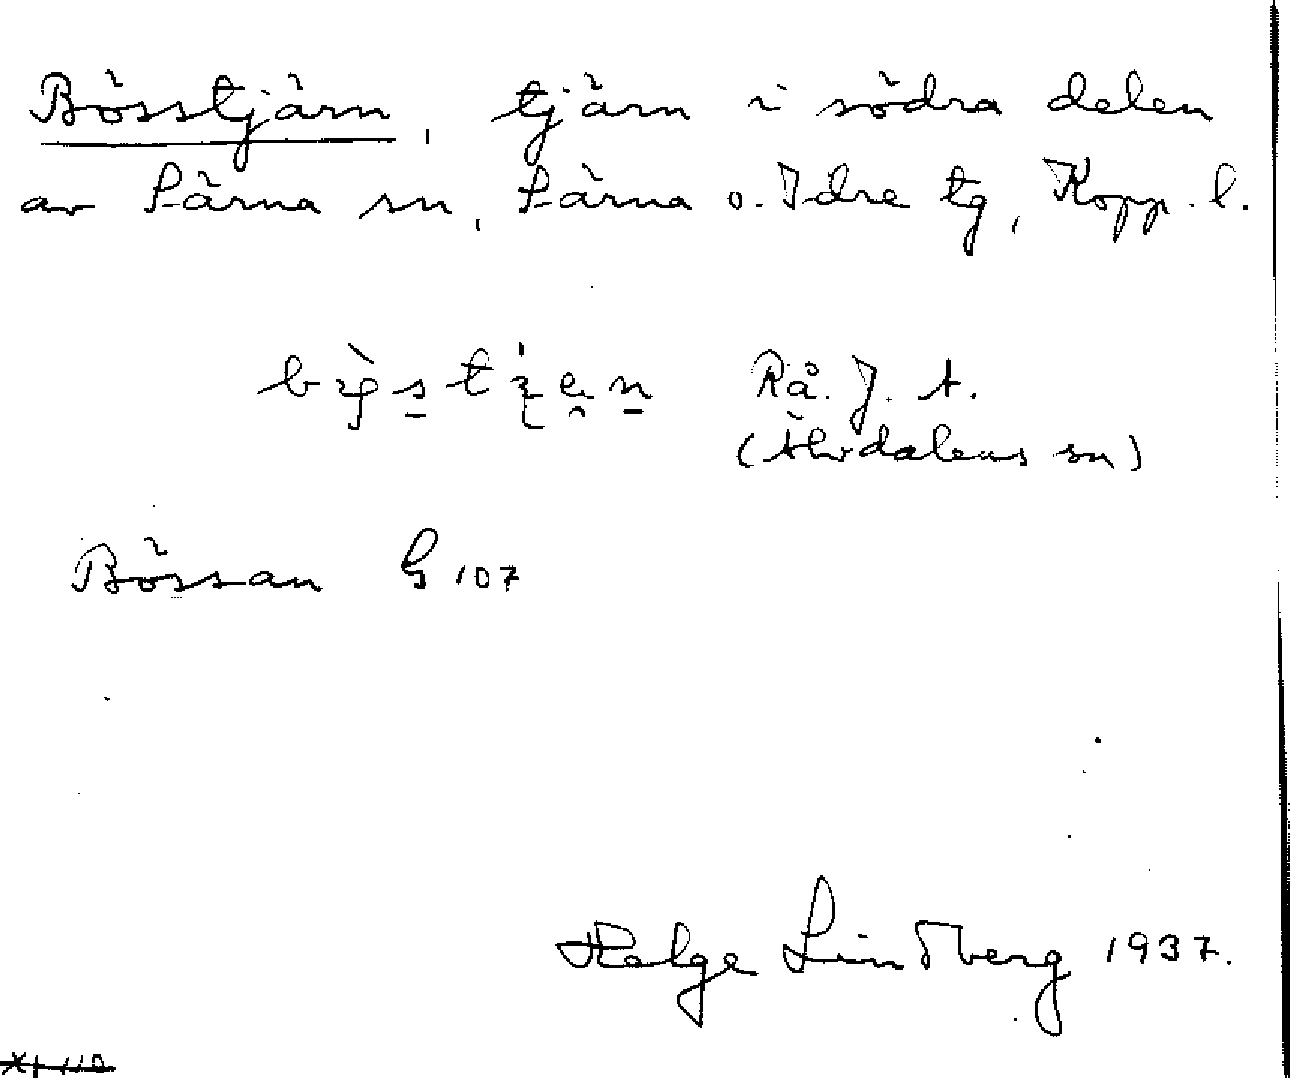 Bösstjärn, tjärn i södra delen
av Särna sn, Särna o. Idre tg, Kopp. l.
Rå. J. A.
(Älvdalens sn)
Bössan G 107
Helge Lindberg 1937.